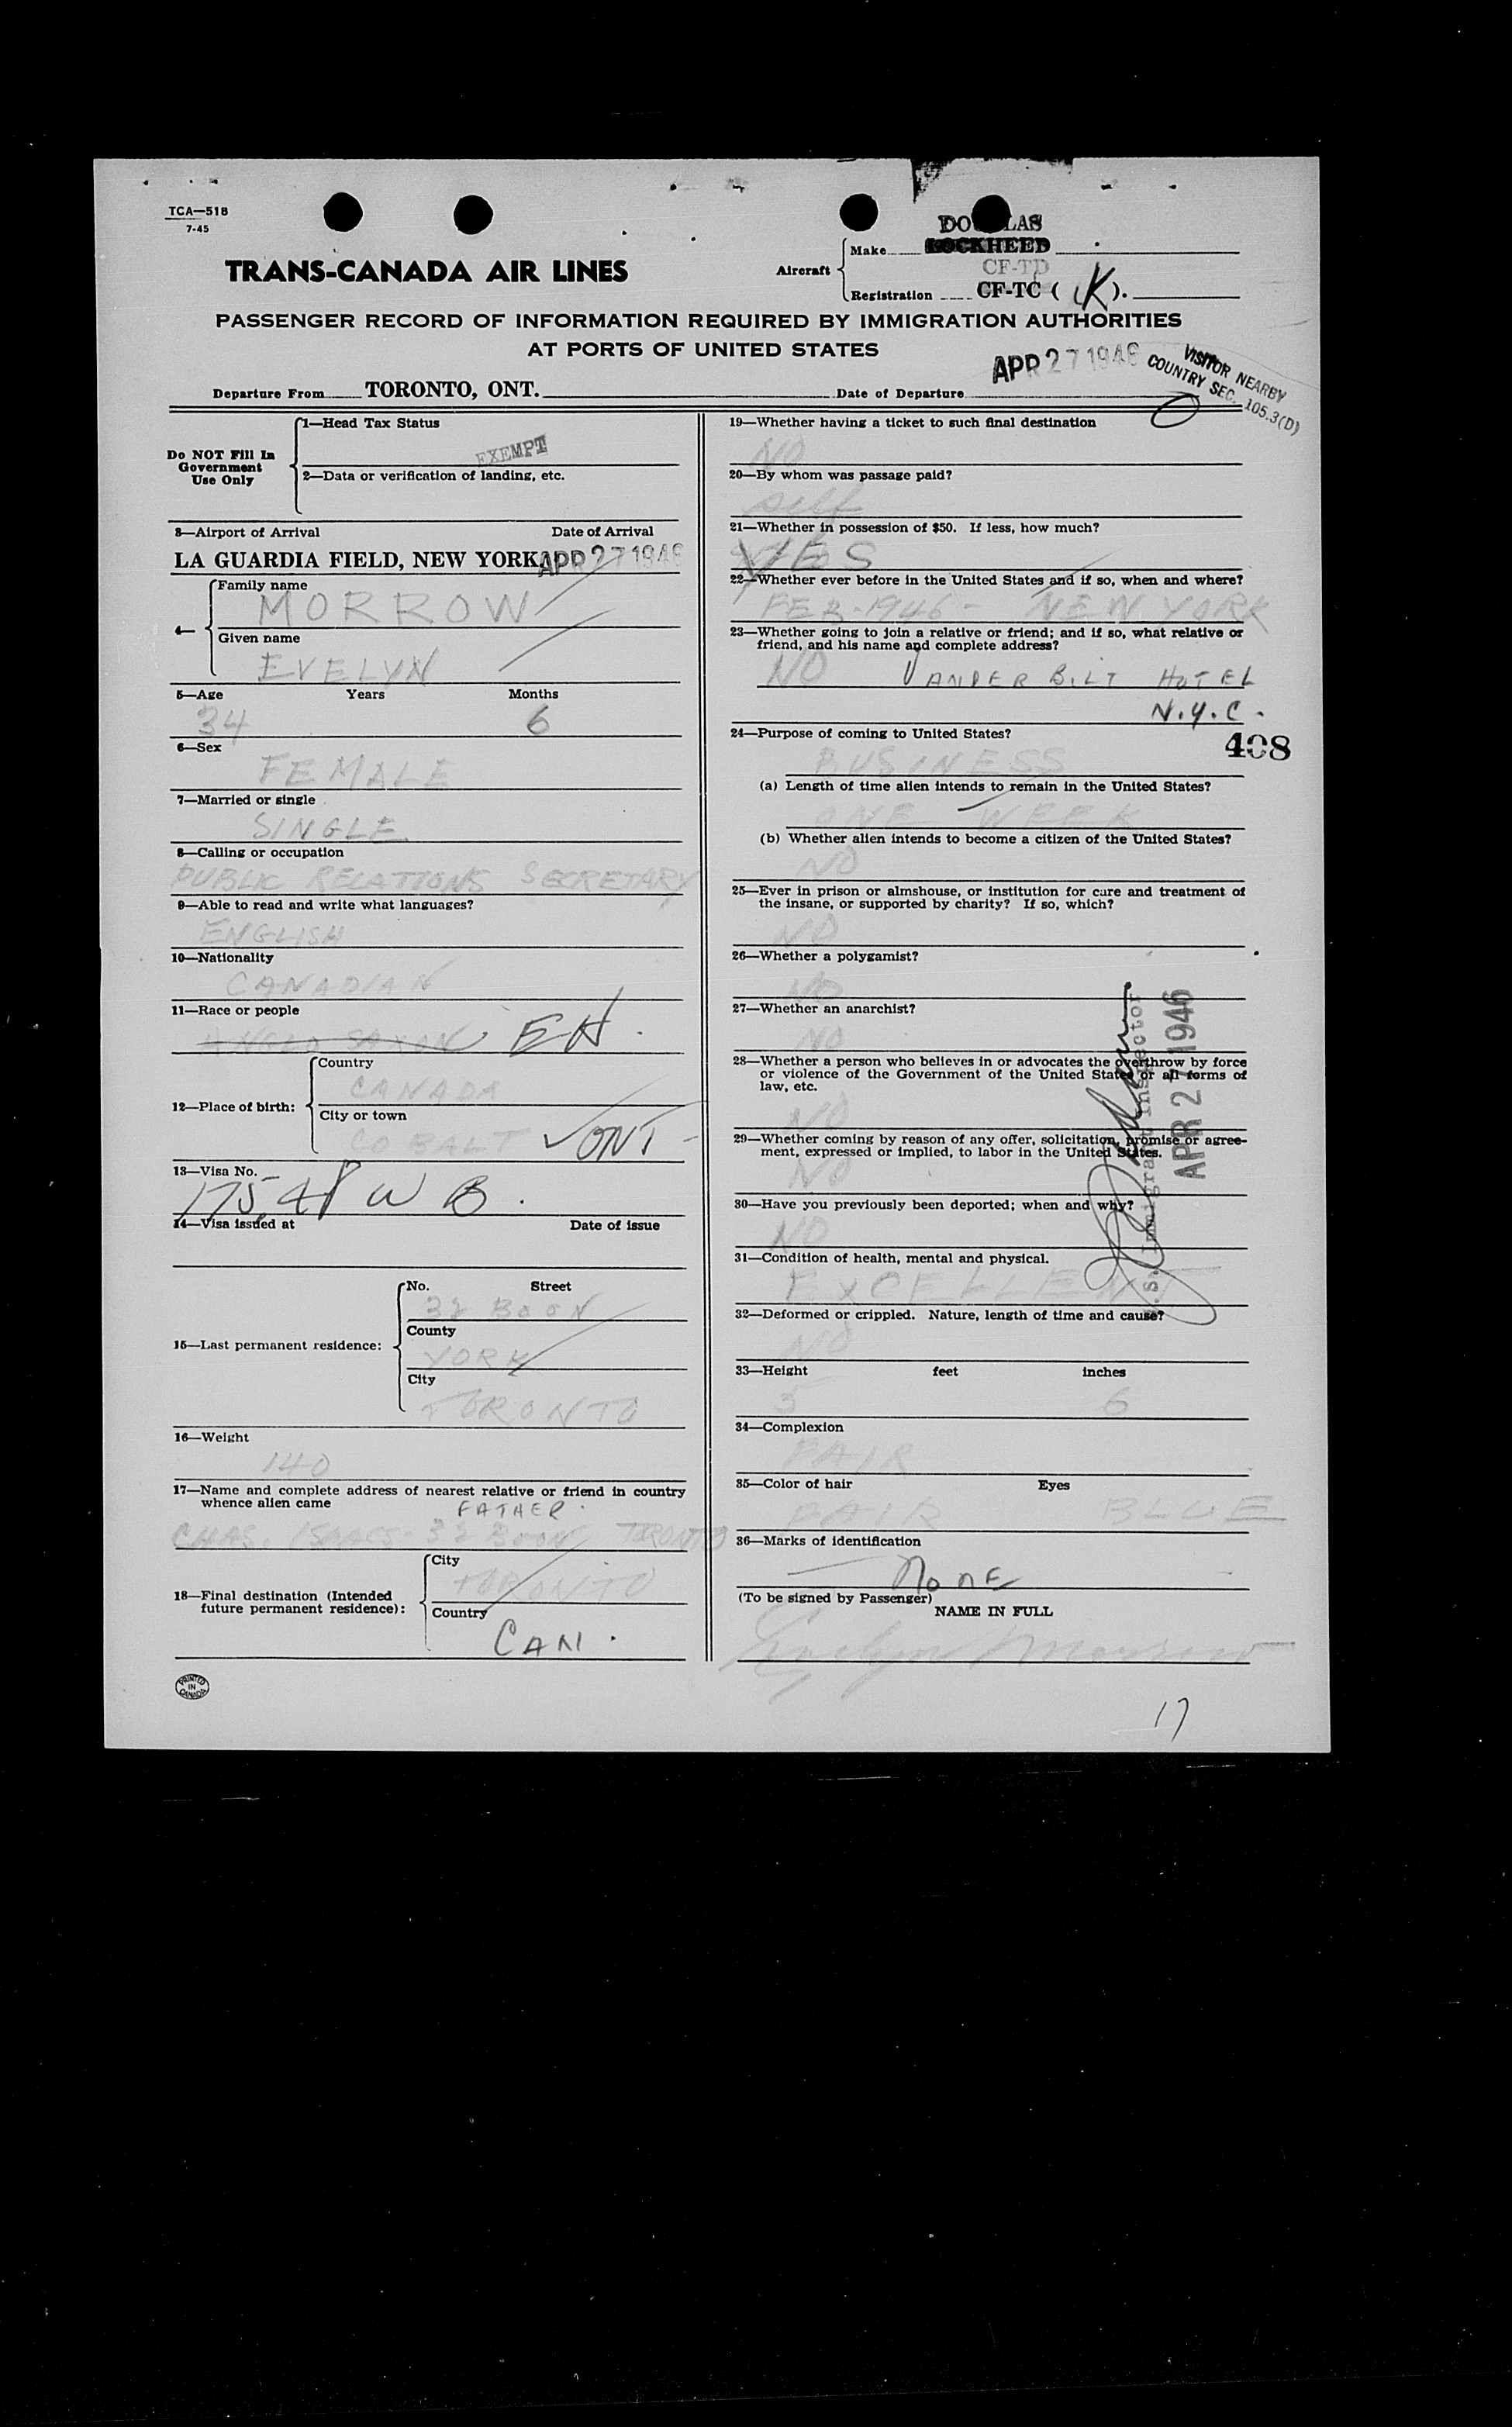 TCA—518
7-45
TRANS-CANADA AIR LINES
Aircraft
Make
DOUGLAS
LOCKHEED
CF-TD
Registration CF-TC ( K ).
PASSENGER RECORD OF INFORMATION REQUIRED BY IMMIGRATION AUTHORITIES
AT PORTS OF UNITED STATES
Departure From TORONTO, ONT.
Date of Departure APR 27 1946
VISITOR NEARBY
COUNTRY SEC. 105.3(D)
Do NOT Fill In
Government
Use Only
1—Head Tax Status
EXEMPT
2—Data or verification of landing, etc.
3—Airport of Arrival Date of Arrival
LA GUARDIA FIELD, NEW YORK APR 27 1946
4—
Family name
MORROW
Given name
EVELYN
5—Age Years Months
34 6
6—Sex
FEMALE
7—Married or single
SINGLE
8—Calling or occupation
PUBLIC RELATIONS SECRETARY
9—Able to read and write what languages?
ENGLISH
10—Nationality
CANADIAN
11—Race or people
ANGLO SAXON
12—Place of birth:
Country
CANADA
City or town
COBALT ONT
13—Visa No.
14—Visa issued at Date of issue
15—Last permanent residence:
No. Street
32 BOON
County
YORK
City
TORONTO
16—Weight
140
17—Name and complete address of nearest relative or friend in country
whence alien came
FATHER
CHAS. ISAACS - 32 BOON TORONTO
18—Final destination (Intended
future permanent residence):
City
TORONTO
Country
CAN.
PRINTED
IN
CANADA
19—Whether having a ticket to such final destination
NO
20—By whom was passage paid?
self
21—Whether in possession of $50. If less, how much?
YES
22—Whether ever before in the United States and if so, when and where?
FEB - 1946 - NEW YORK
23—Whether going to join a relative or friend; and if so, what relative or
friend, and his name and complete address?
NO VANDERBILT HOTEL
N.Y.C.
24—Purpose of coming to United States?
408
BUSINESS
(a) Length of time alien intends to remain in the United States?
ONE WEEK
(b) Whether alien intends to become a citizen of the United States?
NO
25—Ever in prison or almshouse, or institution for care and treatment of
the insane, or supported by charity? If so, which?
NO
26—Whether a polygamist?
NO
27—Whether an anarchist?
NO
28—Whether a person who believes in or advocates the overthrow by force
or violence of the Government of the United States or all forms of
law, etc.
NO
29—Whether coming by reason of any offer, solicitation, promise or agree-
ment, expressed or implied, to labor in the United States.
NO
30—Have you previously been deported; when and why?
NO
31—Condition of health, mental and physical.
EXCELLENT
32—Deformed or crippled. Nature, length of time and cause?
NO
33—Height feet inches
5 6
34—Complexion
FAIR
35—Color of hair Eyes
FAIR BLUE
36—Marks of identification
None
(To be signed by Passenger)
NAME IN FULL
Evelyn Morrow
U.S. Immigrant Inspector
APR 27 1946
17